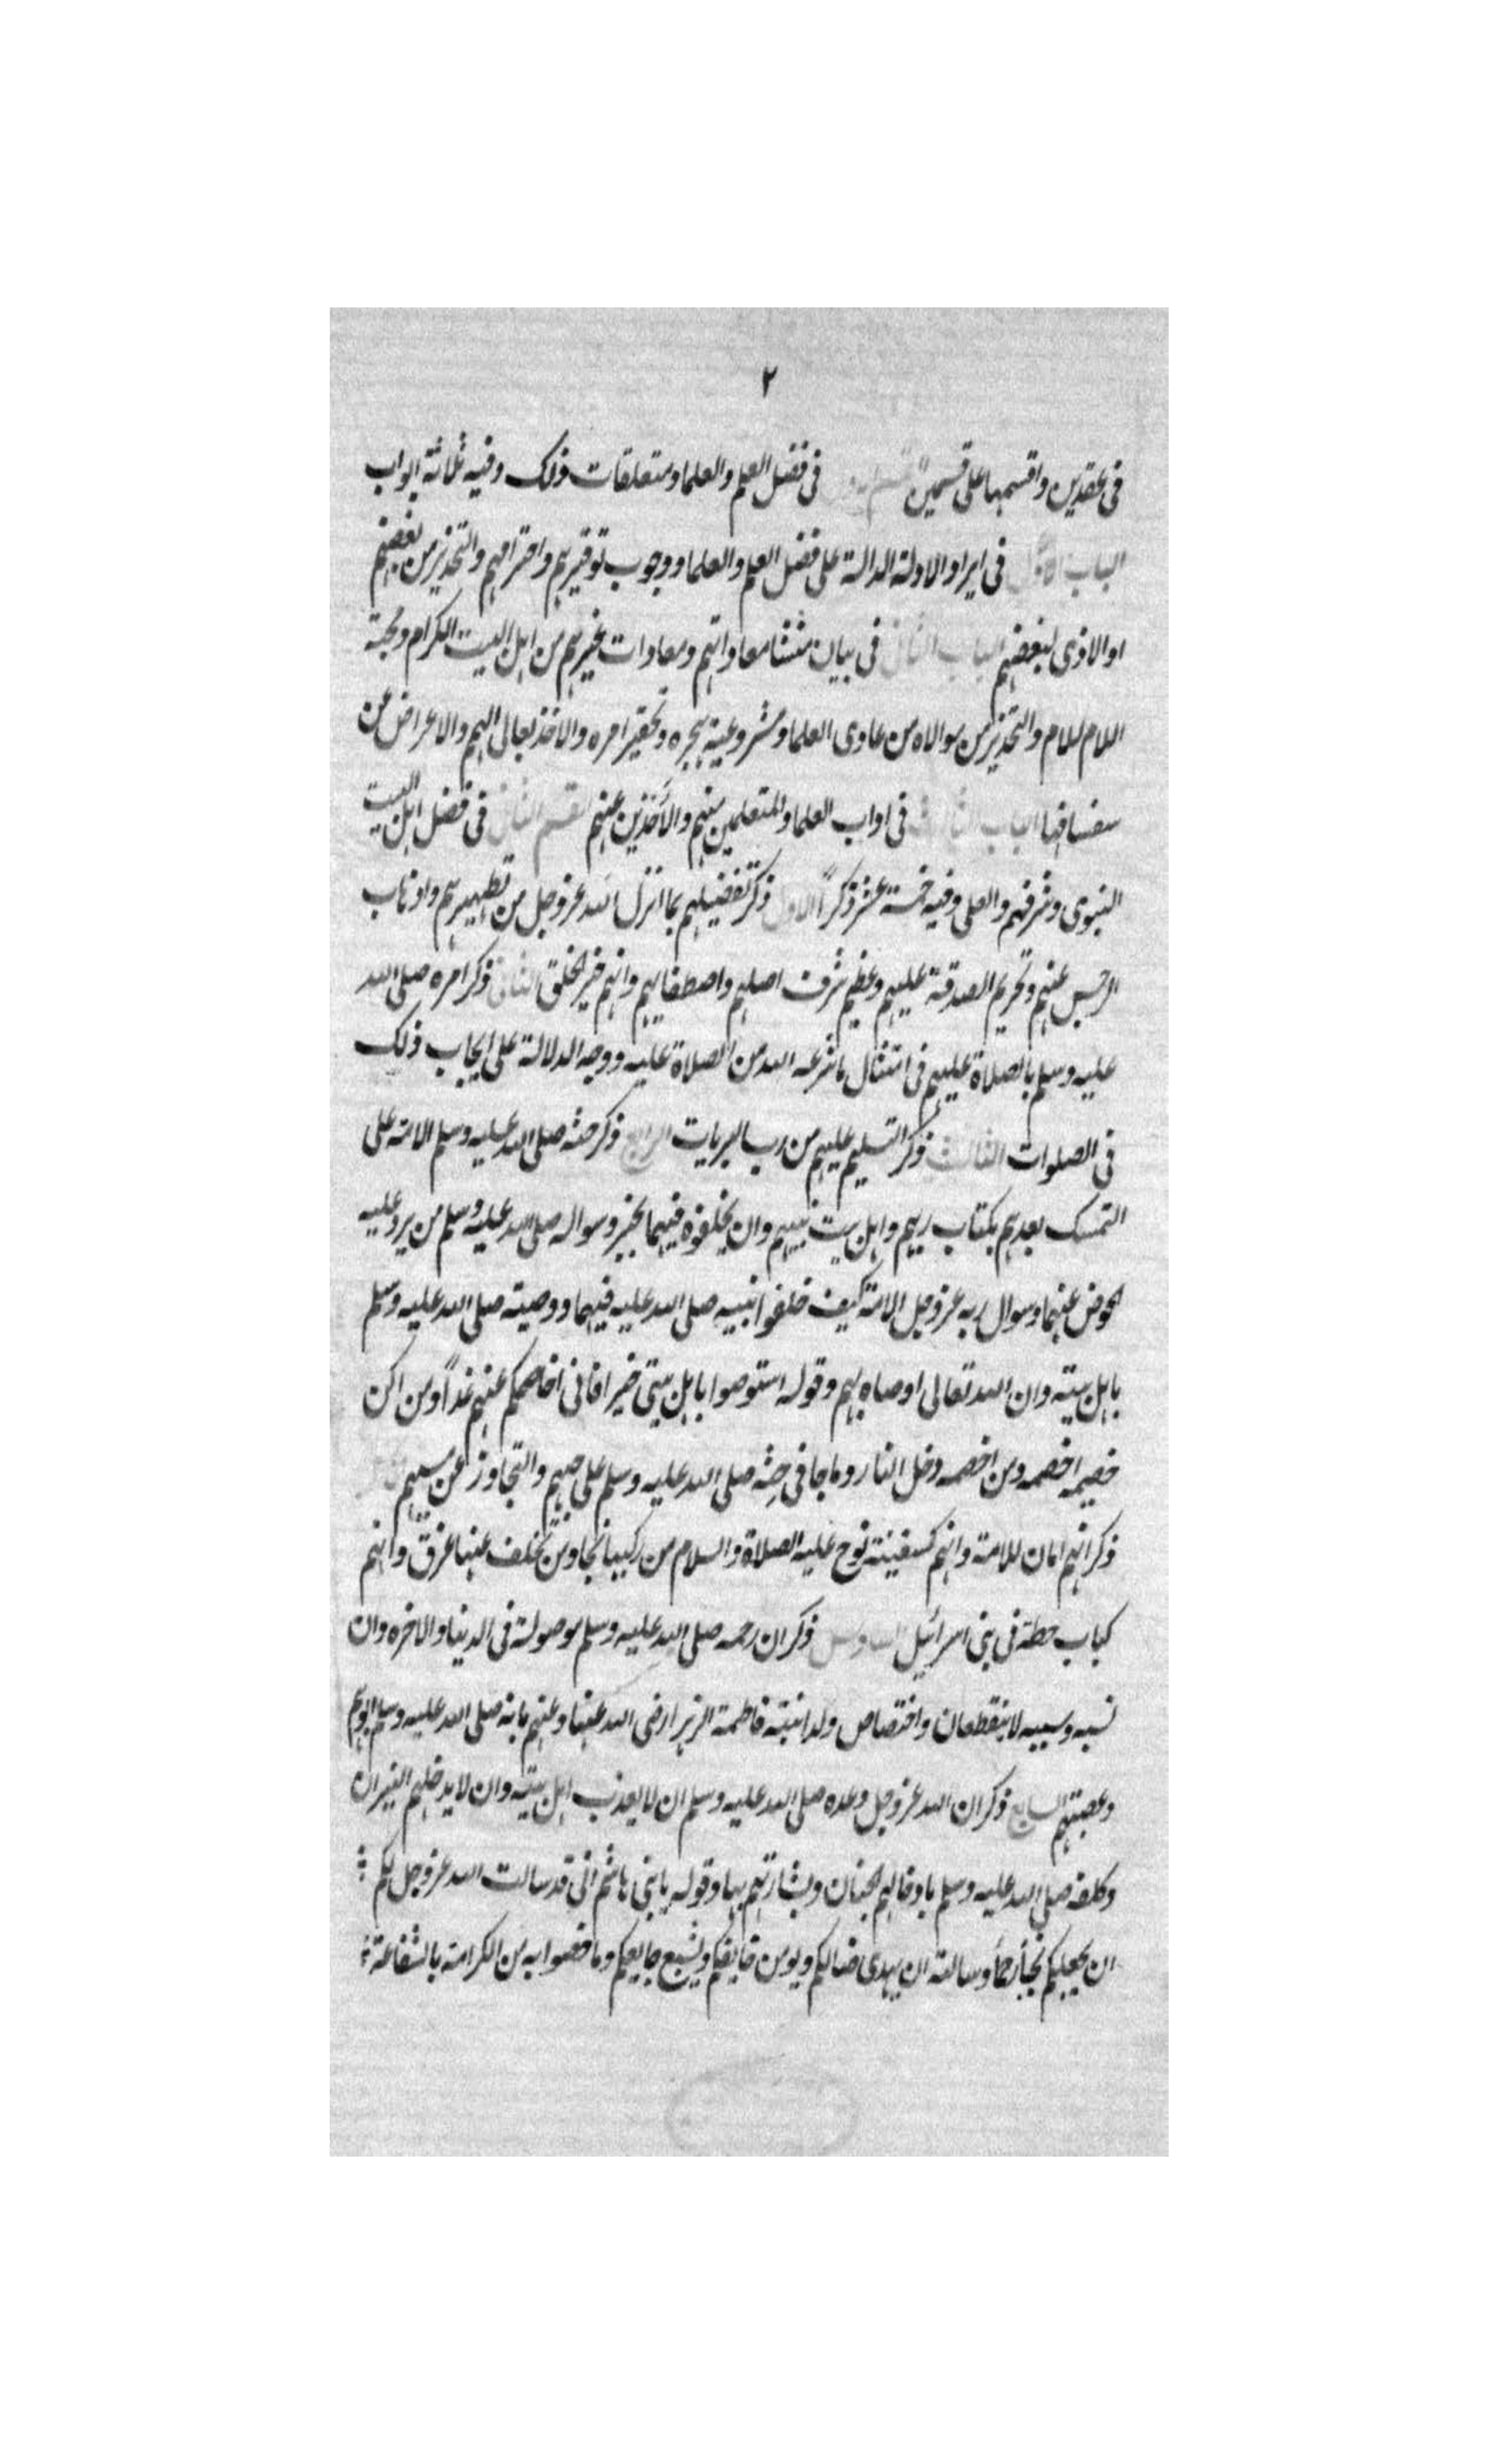 ٢
في عقدين واقسمها على قسمين القسم الاول في فضل العلم والعلما ومتعلقات ذلك وفيه ثلاثة ابواب
الباب الاول في ايراد الادلة الدالة على فضل العلم والعلما ووجوب توقيرهم واحترامهم والتحذير من بغضهم
او الاذى لبعضهم الباب الثاني في بيان منشا معاداتهم ومعادات غيرهم من اهل البيت الكرام
اللام للام والتحذير من موالاه من عادى العلما ومشروعية هجره وتحقير امره والاخذ تعالى اليهم والاعراض عن
الباب الثالث في اداب العلما والمتعلمين منهم والآخذين عنهم القسم الثاني في فضل اهل البيت
النبوي وشرفهم والعلى وفيه خمسة عشر ذكراً الاول ذكر تفضيلهم بما انزل الله عز وجل من تطهيرهم واذهاب
الرجس عنهم وتحريم الصدقة عليهم وعظيم شرف اصلهم واصطفايهم وانهم خير الخلق الثاني ذكر امره صلى الله
عليه وسلم بالصلاة عليهم في امتثال ما شرعه الله من الصلاة عليه ووجه الدلالة على ايجاب ذلك
في الصلوات الثالث ذكر التسليم عليهم من رب البريات الرابع ذكر حثه صلى الله عليه وسلم الامة على
التمسك بعدهم بكتاب ربهم واهل بيت نبيهم وان يخلفوه فيهما بخير وسواله صلى الله عليه وسلم من يرد عليه
الحوض عنهما وسوال ربه عز وجل الامة كيف خلفوا نبيه صلى الله عليه فيهما ووصيته صلى الله عليه وسلم
باهل بيته وان الله تعالى اوصاه بهم وقوله استوصوا باهل بيتي خيرا فاني اخاصمكم عنهم غداً ومن اكن
خصيمه اخصمه ومن اخصمه دخل النار وما جا في حثه صلى الله عليه وسلم على حبهم والتجاوز عن مسيهم
ذكر انهم امان للامة وانهم كسفينة نوح عليه الصلاة والسلام من ركبها نجا ومن تخلف عنها غرق وانهم
كباب حطة في بني اسرائيل السادس ذكر ان رحمه صلى الله عليه وسلم موصولة في الدنيا والاخره وان
نسبه وسببه لا ينقطعان واختصاص ولد ابنته فاطمة الزهرا رضى الله عنها وعنهم بانه صلى الله عليه وسلم ابوهم
وعصبتهم السابع ذكر ان الله عز وجل وعده صلى الله عليه وسلم ان لا يعذب اهل بيته وان لا يدخلهم النيران
وكلفه صلى الله عليه وسلم بادخالهم الجنان وبشارتهم بها وقوله يا بني هاشم اني قد سالت الله عز وجل لكم
ان يجعلكم نجبآ رحمآ وسالته ان يهدى ضالكم ويومن خايفكم ويشبع جايعكم وما خصوا به من الكرامة بالشفاعة